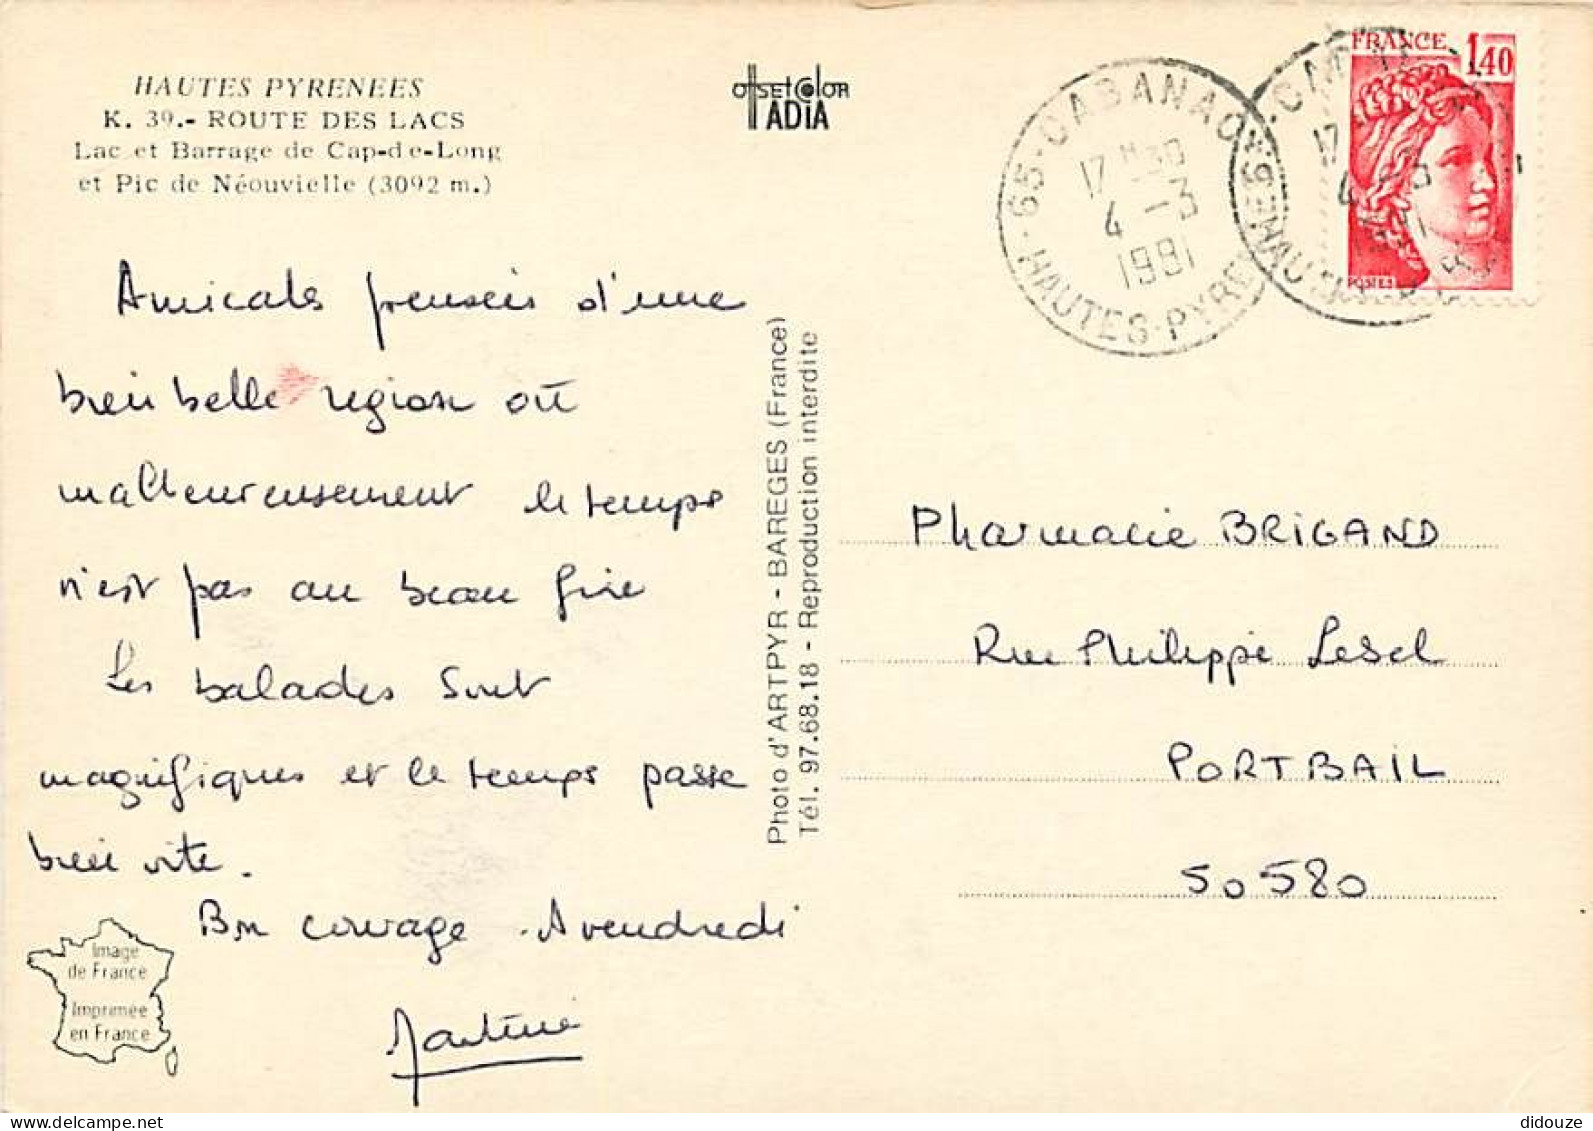 HAUTES PYRENEES
K. 39.- ROUTE DES LACS
Lac et Barrage de Cap-de-Long
et Pic de Néouvielle (3092 m.)
Amicales pensées d'une
bien belle region où
malheureusement le temps
n'est pas au beau fixe
Les balades sont
magnifiques et le temps passe
bien vite.
Bon courage . A vendredi
Martine
Image
de France
Imprimée
en France
offset color
TADIA
Photo d'ARTPYR - BAREGES (France)
Tél. 97.68.18 - Reproduction interdite
65 - CABANAC
17 H 30
4 - 3
1981
HAUTES-PYRENEES
FRANCE 1,40
POSTES
Pharmacie BRIGAND
Rue Philippe Lesel
PORTBAIL
50580
didouze